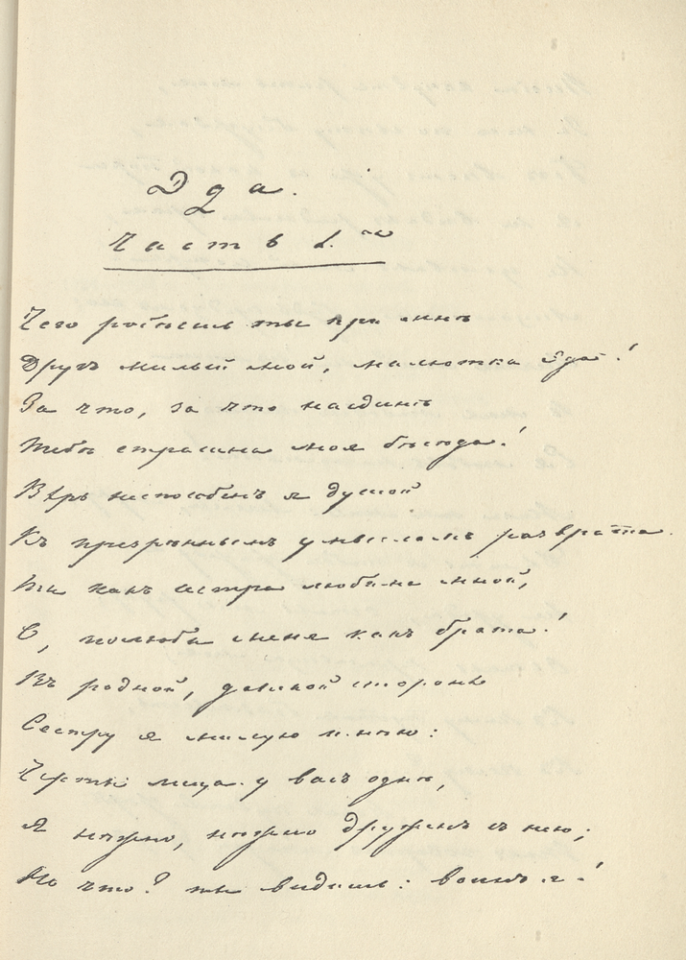 Эда.
Часть 1.ая
Чего робѣешь ты при мнѣ
Другъ милый мой, малютка Эда!
За что, за что наединѣ
Тебѣ страшна моя бесѣда!
Вѣрь неспособенъ я душой
Къ презрѣннымъ умысломъ разврата.
Ты какъ сестра любима мной,
О, полюби меня какъ брата!
Въ родной, далекой сторонѣ
Сестру я милую имѣю:
Черты лица у васъ однѣ,
Я нѣжно, нѣжно друженъ съ нею;
Но что? ты видишь: воинъ я!